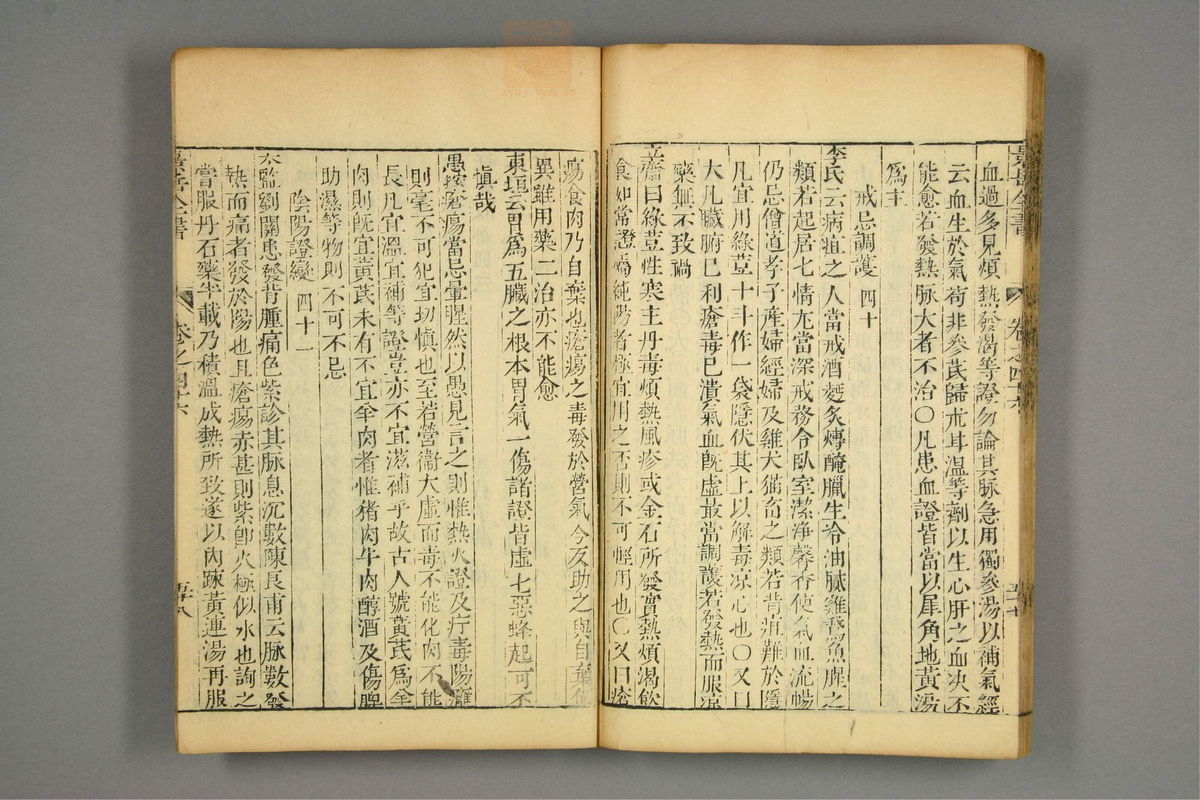 景岳全書 卷之四十六 五十七
血過多見煩熱發渴等證勿論其脉急用獨參湯以補氣經
云血生於氣苟非參芪歸朮甘温等劑以生心肝之血决不
能愈若發熱脉大者不治〇凡患血證皆當以犀角地黄湯
爲主
戒忌調護 四十
李氏云病疽之人當戒酒麪炙煿醃臘生冷油膩雞鵞魚腥之
類若起居七情尢當深戒務令臥室潔淨馨香使氣血流暢
仍忌僧道孝子産婦經婦及雞犬猫畜之類若背疽難於隱
几宜用綠荳十斗作一袋隱伏其上以解毒凉心也〇又曰
大凡臓腑巳利瘡毒巳潰氣血旣虛最當調護若發熱而服凉
藥無不致禍
立齋曰綠荳性寒主丹毒煩熱風疹或金石所發實熱煩渴飲
食如常證屬純陽者極宜用之否則不可輕用也〇又曰瘡
瘍食肉乃自棄也瘡瘍之毒發於營氣今反助之與自棄何
異雖用藥二治亦不能愈
東垣云胃爲五臓之根本胃氣一傷諸證皆虛七惡蜂起可不
愼哉
愚按瘡瘍當忌葷腥然以愚見言之則惟熱火證及疔毒陽癰
則毫不可犯宜切愼也至若營衞大虛而毒不能化肉不能
長凡宜溫宜補等證豈亦不宜滋補乎故古人號黃芪爲羊
肉則旣宜黃芪未有不宜羊肉者惟猪肉牛肉醇酒及傷脾
助濕等物則不可不忌
陰陽證變 四十一
太監劉關患發背腫痛色紫診其脉息沉數陳良甫云脉數發
熱而痛者發於陽也且瘡瘍赤甚則紫卽火極似水也詢之
嘗服丹石藥半載乃積溫成熱所致遂以内踈黃連湯再服
景岳全書 卷之四十六 五十八